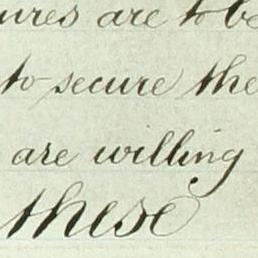 ures are to be
to secure the
are willing
these